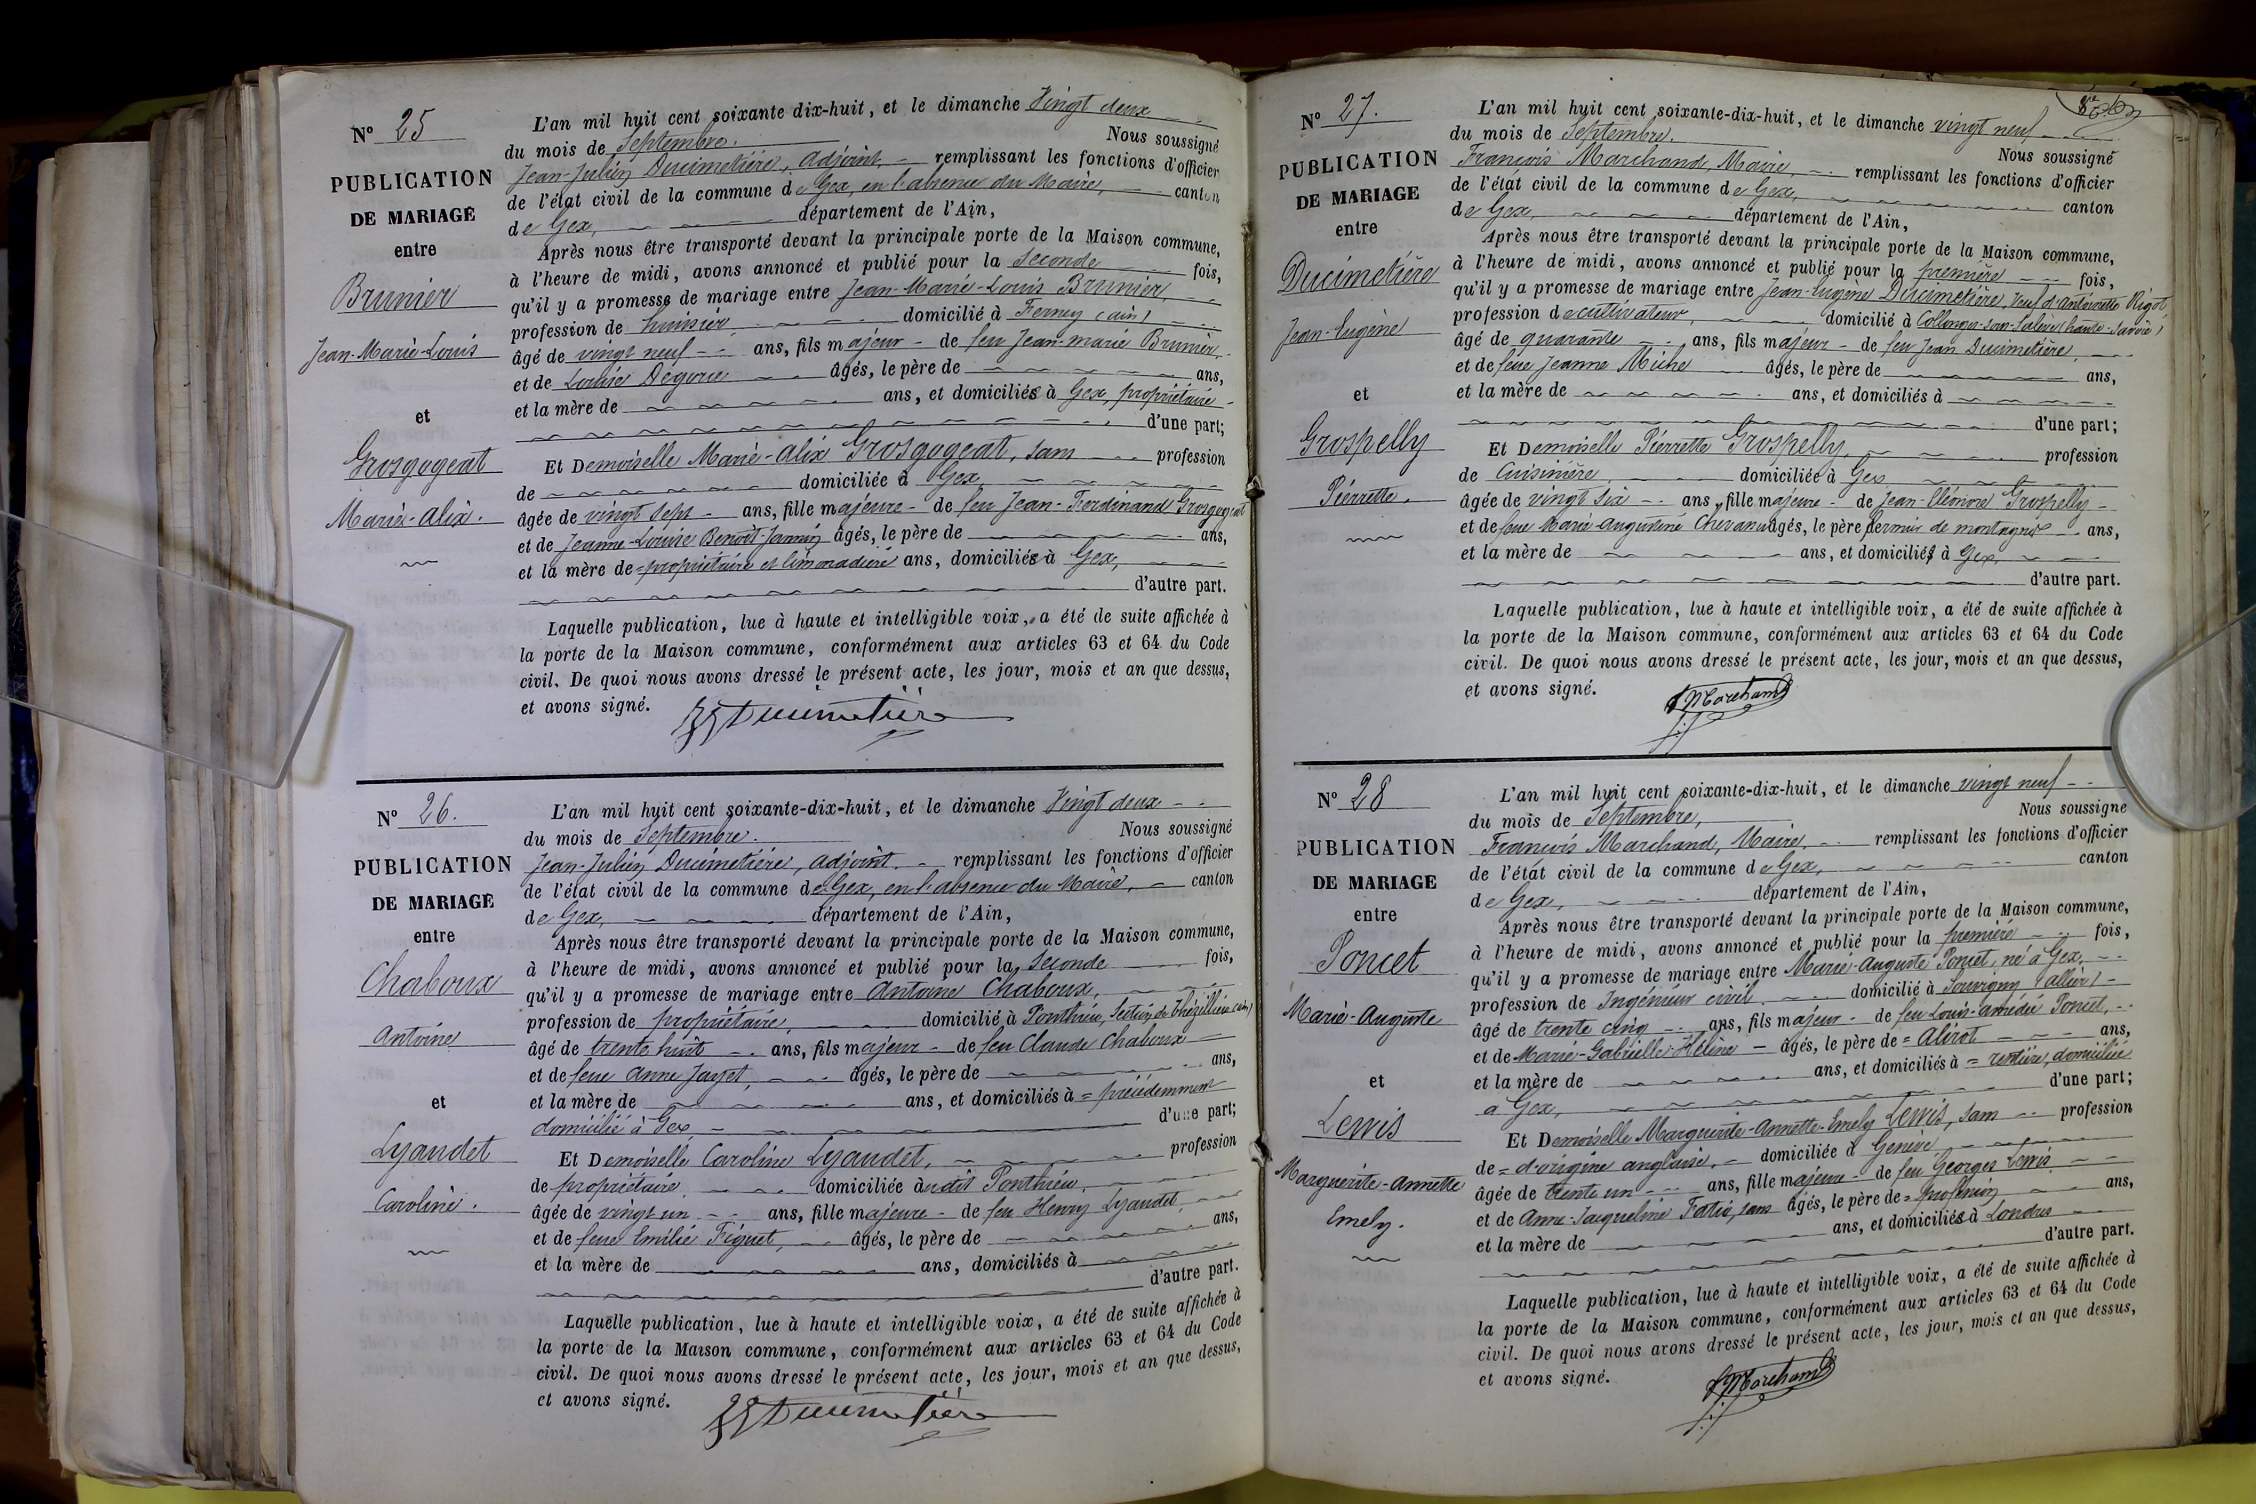 N° 25
PUBLICATION
DE MARIAGE
entre
Brunier
Jean-Marie-Louis
et
Grosgogeat
Marie-Alix.
L'an mil huit cent soixante dix-huit, et le dimanche Vingt deux
du mois de Septembre. Nous soussigné
Jean-Julien Ducimetière, adjoint, remplissant les fonctions d'officier
de l'état civil de la commune de Gex, en l'absence du Maire, canton
de Gex, département de l'Ain,
Après nous être transporté devant la principale porte de la Maison commune,
à l'heure de midi, avons annoncé et publié pour la seconde fois,
qu'il y a promesse de mariage entre Jean-Marie-Louis Brunier,
profession de huissier, domicilié à Ferney (ain)
âgé de vingt neuf ans, fils majeur de feu Jean-marie Brunier
et de Louise âgés, le père de ans,
et la mère de ans, et domiciliés à Gex, propriétaire
d'une part;
Et Demoiselle Marie-Alix Grosgogeat, sans profession
de domiciliée à Gex
âgée de vingt sept ans, fille majeure de feu Jean-Ferdinand Grosgogeat
et de Jeanne-Louise Benoit-Jannin âgés, le père de ans,
et la mère de =propriétaire et limonadière ans, domiciliés à Gex,
d'autre part.
Laquelle publication, lue à haute et intelligible voix, a été de suite affichée à
la porte de la Maison commune, conformément aux articles 63 et 64 du Code
civil. De quoi nous avons dressé le présent acte, les jour, mois et an que dessus,
et avons signé.
JJ Ducimetière
N° 26.
PUBLICATION
DE MARIAGE
entre
Chaboux
Antoine
et
Lyaudet
Caroline.
L'an mil huit cent soixante-dix-huit, et le dimanche Vingt deux
du mois de Septembre. Nous soussigné
Jean-Julien Ducimetière, adjoint. remplissant les fonctions d'officier
de l'état civil de la commune de Gex, en l'absence du Maire, canton
de Gex, département de l'Ain,
Après nous être transporté devant la principale porte de la Maison commune,
à l'heure de midi, avons annoncé et publié pour la seconde fois,
qu'il y a promesse de mariage entre Antoine Chaboux,
profession de propriétaire, domicilié à Ponthieu, Section de Thézillieu (ain)
âgé de trente huit ans, fils majeur de feu Claude Chaboux
et de feue Anne Jayet, âgés, le père de ans,
et la mère de ans, et domiciliés à = précédemment
domicilié à Gex d'une part;
Et Demoiselle Caroline Lyaudet, profession
de propriétaire, domiciliée audit Ponthieu,
âgée de vingt un ans, fille majeure de feu Henry Lyaudet,
et de feue Emilie Figuet, âgés, le père de ans,
et la mère de ans, domiciliés à
d'autre part.
Laquelle publication, lue à haute et intelligible voix, a été de suite affichée à
la porte de la Maison commune, conformément aux articles 63 et 64 du Code
civil. De quoi nous avons dressé le présent acte, les jour, mois et an que dessus,
et avons signé.
JJ Ducimetière
N° 27.
PUBLICATION
DE MARIAGE
entre
Ducimetière
Jean-Eugène
et
Grospelly
Pierrette.
L'an mil huit cent soixante-dix-huit, et le dimanche vingt neuf
du mois de Septembre. Nous soussigné
François Marchand, Maire, remplissant les fonctions d'officier
de l'état civil de la commune de Gex, canton
de Gex, département de l'Ain,
Après nous être transporté devant la principale porte de la Maison commune,
à l'heure de midi, avons annoncé et publié pour la première fois,
qu'il y a promesse de mariage entre Jean-Eugène Ducimetière, veuf d'Antoinette Rigot
profession de cultivateur, domicilié à Collonges-sous-Salève (haute-savoie)
âgé de quarante ans, fils majeur de feu Jean Ducimetière,
et de feue Jeanne Miche âgés, le père de ans,
et la mère de ans, et domiciliés à
d'une part;
Et Demoiselle Pierrette Grospelly, profession
de Cuisinière domiciliée à Gex
âgée de vingt six ans, fille majeure de Jean-Eléonore Grospelly
et de feue Marie-augustine âgés, le père fermier de montagne ans,
et la mère de ans, et domicilié à Gex,
d'autre part.
Laquelle publication, lue à haute et intelligible voix, a été de suite affichée à
la porte de la Maison commune, conformément aux articles 63 et 64 du Code
civil. De quoi nous avons dressé le présent acte, les jour, mois et an que dessus,
et avons signé.
f Marchand
N° 28
PUBLICATION
DE MARIAGE
entre
Poncet
Marie-Auguste
et
Lewis
Marguerite-Annette
Emely.
L'an mil huit cent soixante-dix-huit, et le dimanche vingt neuf
du mois de Septembre, Nous soussigné
François Marchand, Maire, remplissant les fonctions d'officier
de l'état civil de la commune de Gex, canton
de Gex, département de l'Ain,
Après nous être transporté devant la principale porte de la Maison commune,
à l'heure de midi, avons annoncé et publié pour la première fois,
qu'il y a promesse de mariage entre Marie-Auguste Poncet, né à Gex,
profession de Ingénieur civil domicilié à Souvigny (allier)
âgé de trente cinq ans, fils majeur de feu Louis-amédée Poncet,
et de Marie-Gabrielle-Hélène âgés, le père de = Alirot ans,
et la mère de ans, et domiciliés à = rentière, domiciliée
à Gex, d'une part;
Et Demoiselle Marguerite-Annette-Emely Lewis, sans profession
de = d'origine anglaise, domiciliée à Genève
âgée de trente un ans, fille majeure de feu Georges Lewis
et de Anne-Jacqueline Fatio, sans âgés, le père de = profession ans,
et la mère de ans, et domiciliés à Londres
d'autre part.
Laquelle publication, lue à haute et intelligible voix, a été de suite affichée à
la porte de la Maison commune, conformément aux articles 63 et 64 du Code
civil. De quoi nous avons dressé le présent acte, les jour, mois et an que dessus,
et avons signé.
f Marchand